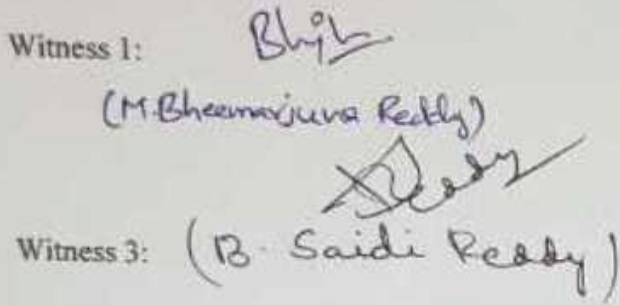 Witness 1:
(M.Bheemarjuna Reddy)
Reddy
Witness 3: (B. Saidi Reddy)